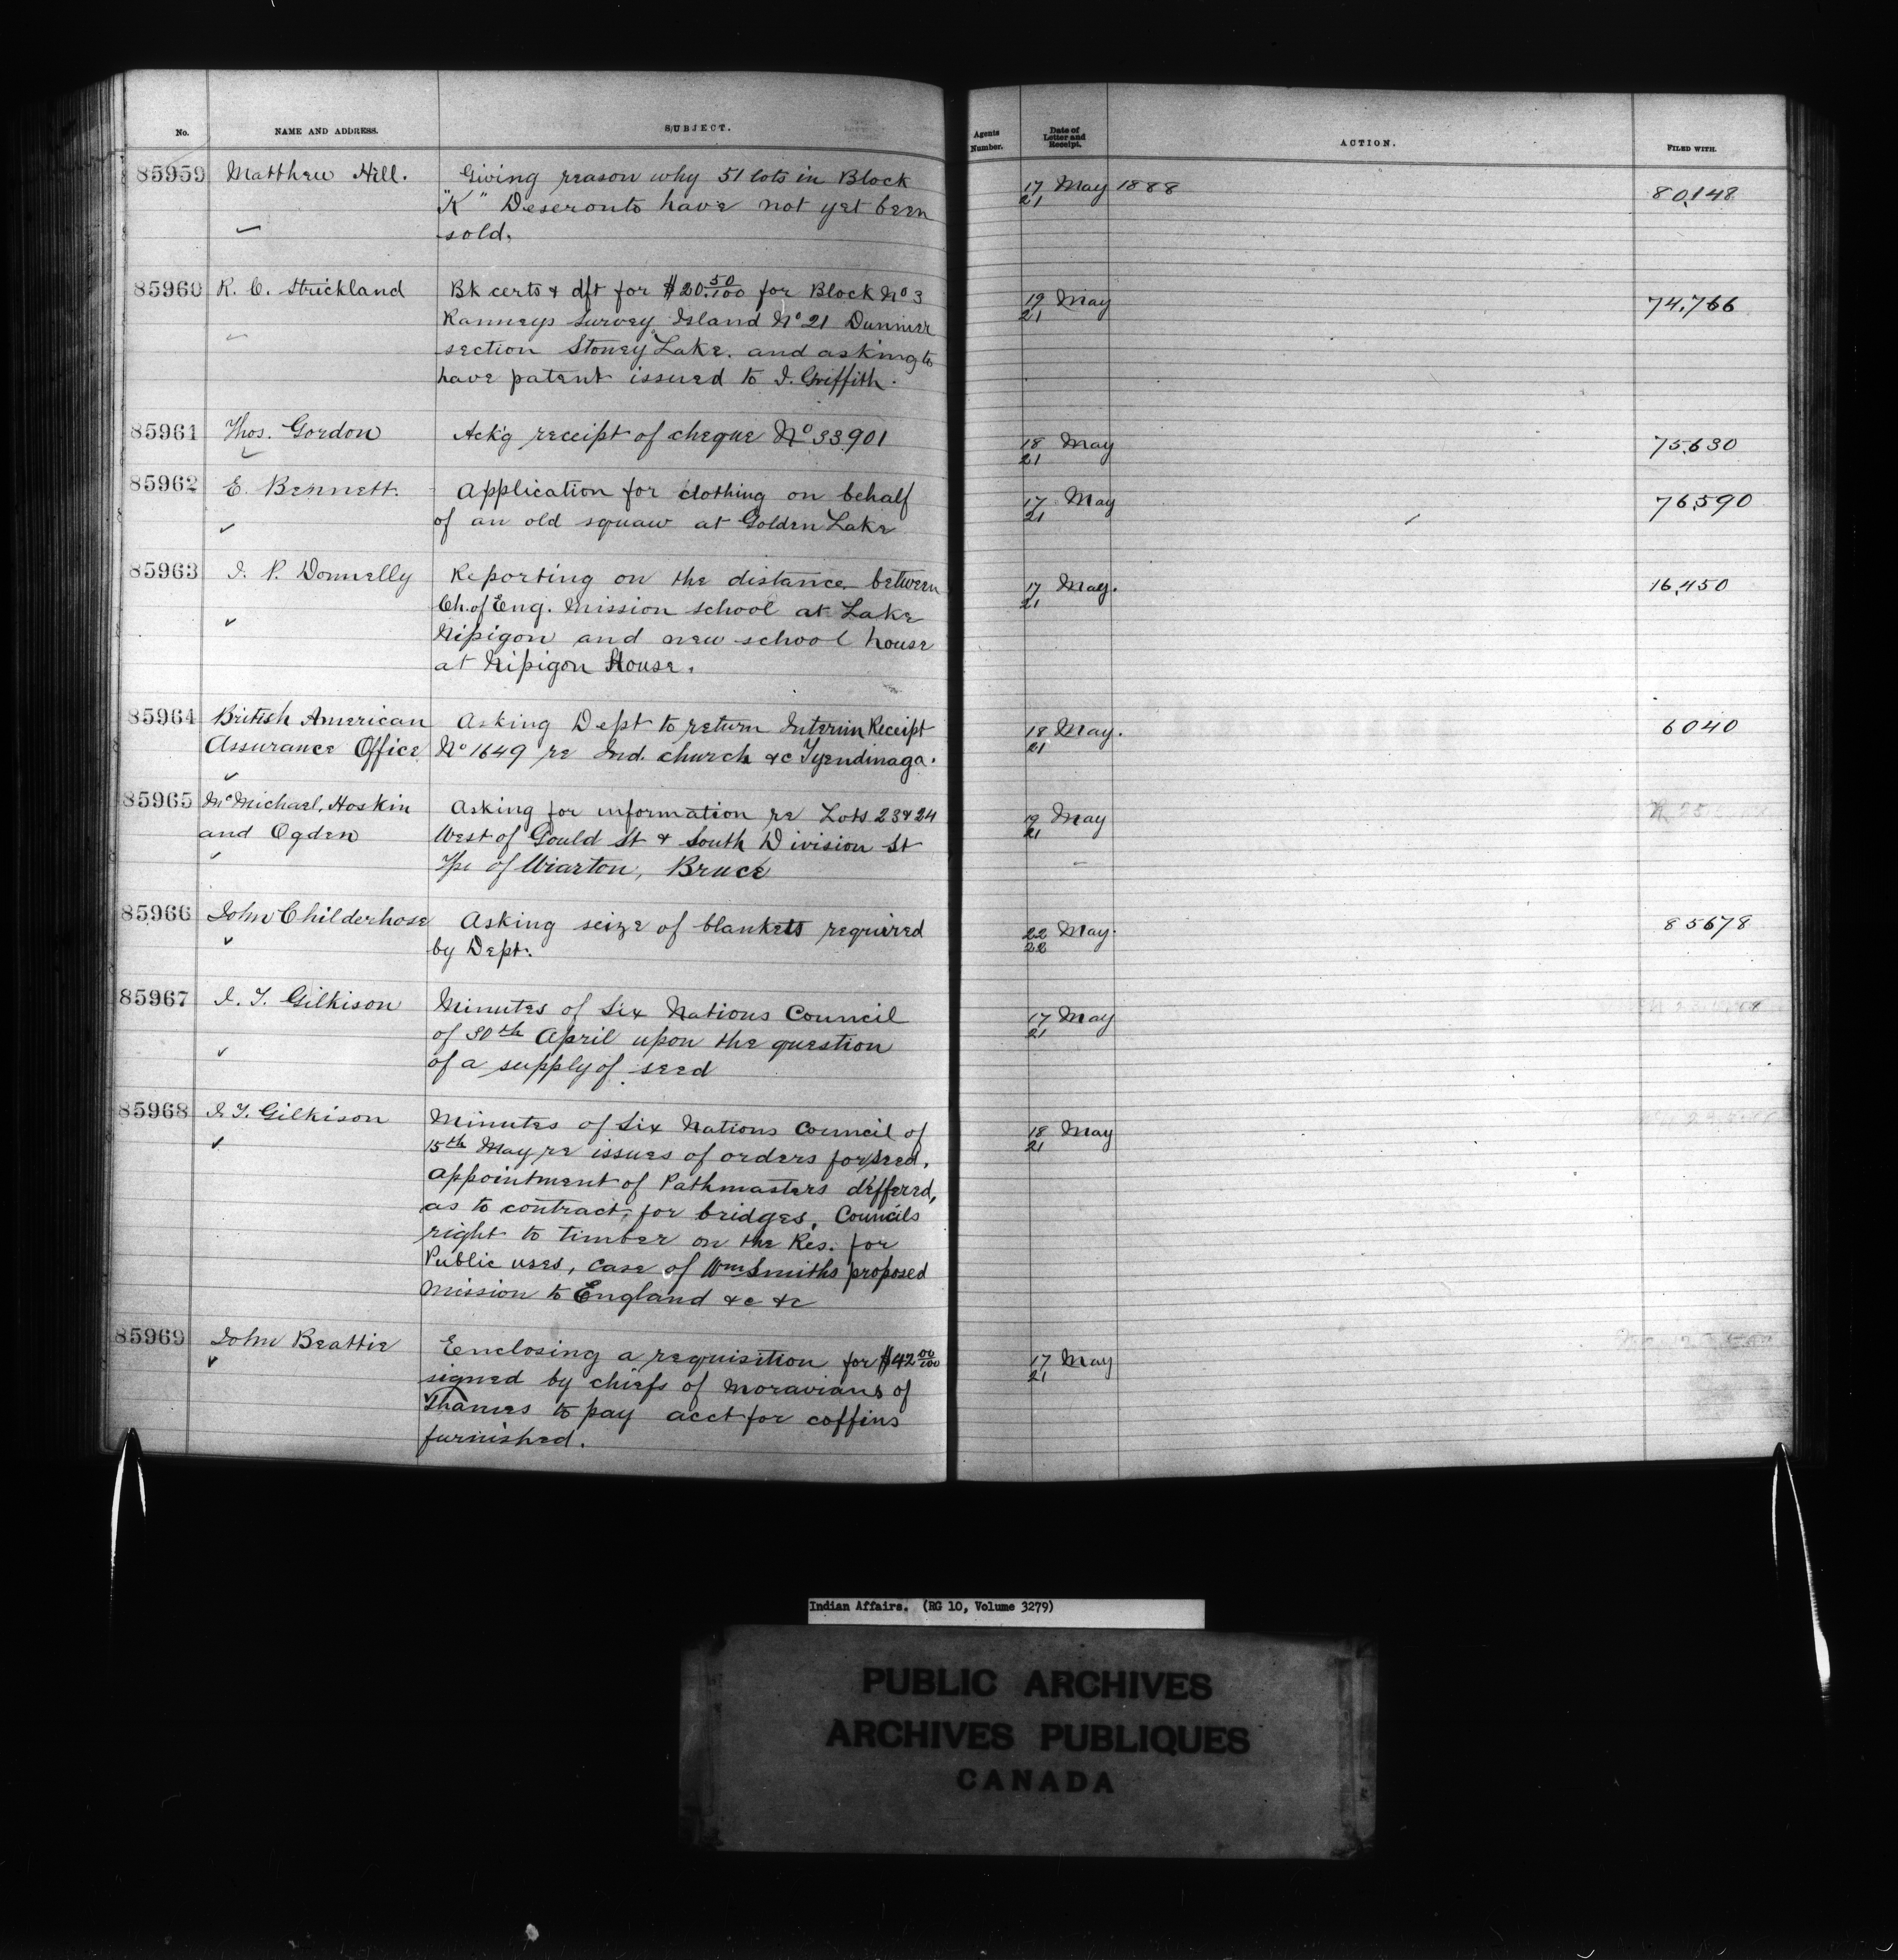 No. NAME AND ADDRESS. SUBJECT. Agents Number. Date of Letter and Receipt. ACTION. FILED WITH.
85959 Matthew Hill. Giving reason why 51 lots in Block 17/21 May 1888 80,148
"K" Deseronto have not yet been
sold.
85960 R. C. Strickland Bk certs & dft for $20.50/100 for Block No 3 19/21 May 74,766
Ranneys Survey, Island No 21 Dummer
section Stoney Lake. and asking to
have patent issued to J. Griffith.
85961 Thos. Gordon Ack'g receipt of cheque No 33901 18/21 May 75,630
85962 E. Bennett. Application for clothing on behalf 17/21 May 76,590
of an old squaw at Golden Lake
85963 J. P. Donnelly Reporting on the distance between 17/21 May. 16,450
Ch. of Eng. Mission school at Lake
Nipigon and new school house
at Nipigon House.
85964 British American Asking Dept to return Interim Receipt 18/21 May. 6040
Assurance Office No 1649 re Ind. church &c Tyendinaga.
85965 McMichael, Hoskin Asking for information re Lots 23 & 24 19/21 May
and Ogden West of Gould St & South Division St
Tp. of Wiarton, Bruce
85966 John Childerhose Asking seize of blankets required 22/22 May. 85678
by Dept.
85967 J. T. Gilkison Minutes of Six Nations Council 17/21 May
of 30th April upon the question
of a supply of seed
85968 J. T. Gilkison Minutes of Six Nations Council of 18/21 May
15th May re issues of orders for seed,
appointment of Pathmasters deffered,
as to contract, for bridges, Councils
right to timber on the Res. for
Public uses, case of Wm Smiths proposed
mission to England &c &c
85969 John Beattie Enclosing a requisition for $42 00/100 17/21 May
signed by chiefs of Moravians of
Thames to pay acct for coffins
furnished.
Indian Affairs. (RG 10, Volume 3279)
PUBLIC ARCHIVES
ARCHIVES PUBLIQUES
CANADA